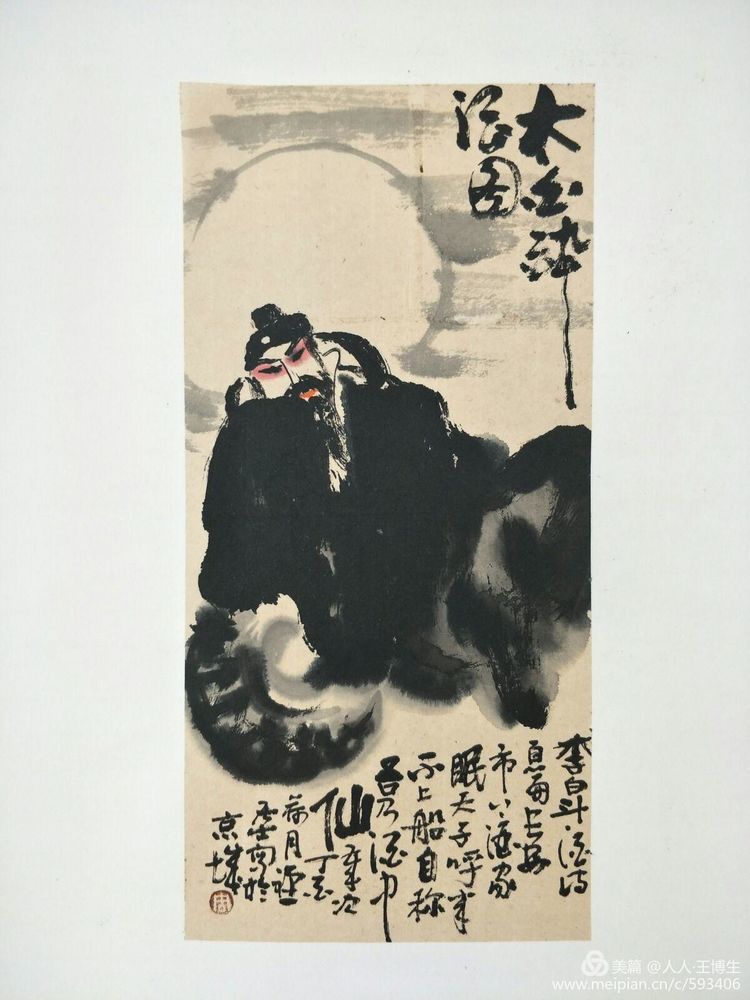 太白醉
酒图
李白斗酒诗
百篇长安
市上酒家
眠天子呼来
不上船自称
吾乃酒中
仙岁次
丁亥
荷月
于
京城
美篇 @人人·王博生
www.meipian.cn/c/593406